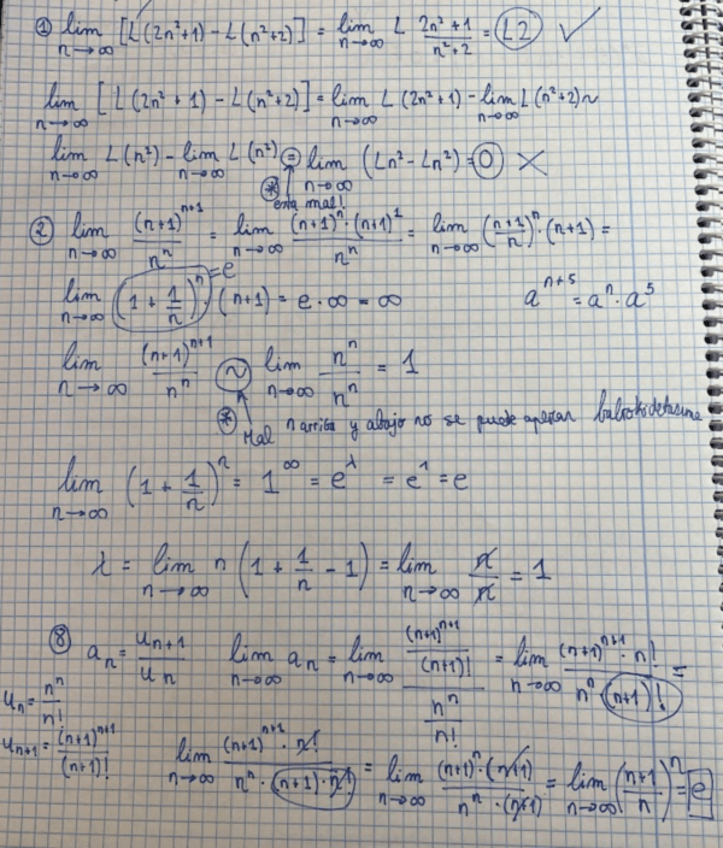 ① lim n→∞ [L(2n²+1) - L(n²+2)] = lim n→∞ L (2n²+1)/(n²+2) = L2 ✓
lim n→∞ [L(2n²+1) - L(n²+2)] = lim n→∞ L(2n²+1) - lim n→∞ L(n²+2) ~
lim n→∞ L(n²) - lim n→∞ L(n²) = lim n→∞ (Ln² - Ln²) = 0 ✗
* esta mal!
② lim n→∞ (n+1)ⁿ⁺¹/nⁿ = lim n→∞ (n+1)ⁿ·(n+1)¹/nⁿ = lim n→∞ ((n+1)/n)ⁿ·(n+1) =
lim n→∞ (1 + 1/n)ⁿ · (n+1) = e·∞ = ∞
= e
aⁿ⁺⁵ = aⁿ·a⁵
lim n→∞ (n+1)ⁿ⁺¹/nⁿ ~ lim n→∞ nⁿ/nⁿ = 1
* Mal n arriba y abajo no se puede aplicar
lim n→∞ (1 + 1/n)ⁿ = 1^∞ = e^λ = e¹ = e
λ = lim n→∞ n (1 + 1/n - 1) = lim n→∞ n/n = 1
⑧ aₙ = uₙ₊₁/uₙ lim n→∞ aₙ = lim n→∞ ((n+1)ⁿ⁺¹/(n+1)!)/(nⁿ/n!) = lim n→∞ (n+1)ⁿ⁺¹·n!/(nⁿ·(n+1)!) =
uₙ = nⁿ/n!
uₙ₊₁ = (n+1)ⁿ⁺¹/(n+1)!
lim n→∞ (n+1)ⁿ⁺¹·n!/(nⁿ·(n+1)·n!) = lim n→∞ (n+1)ⁿ·(n+1)/(nⁿ·(n+1)) = lim n→∞ ((n+1)/n)ⁿ = e